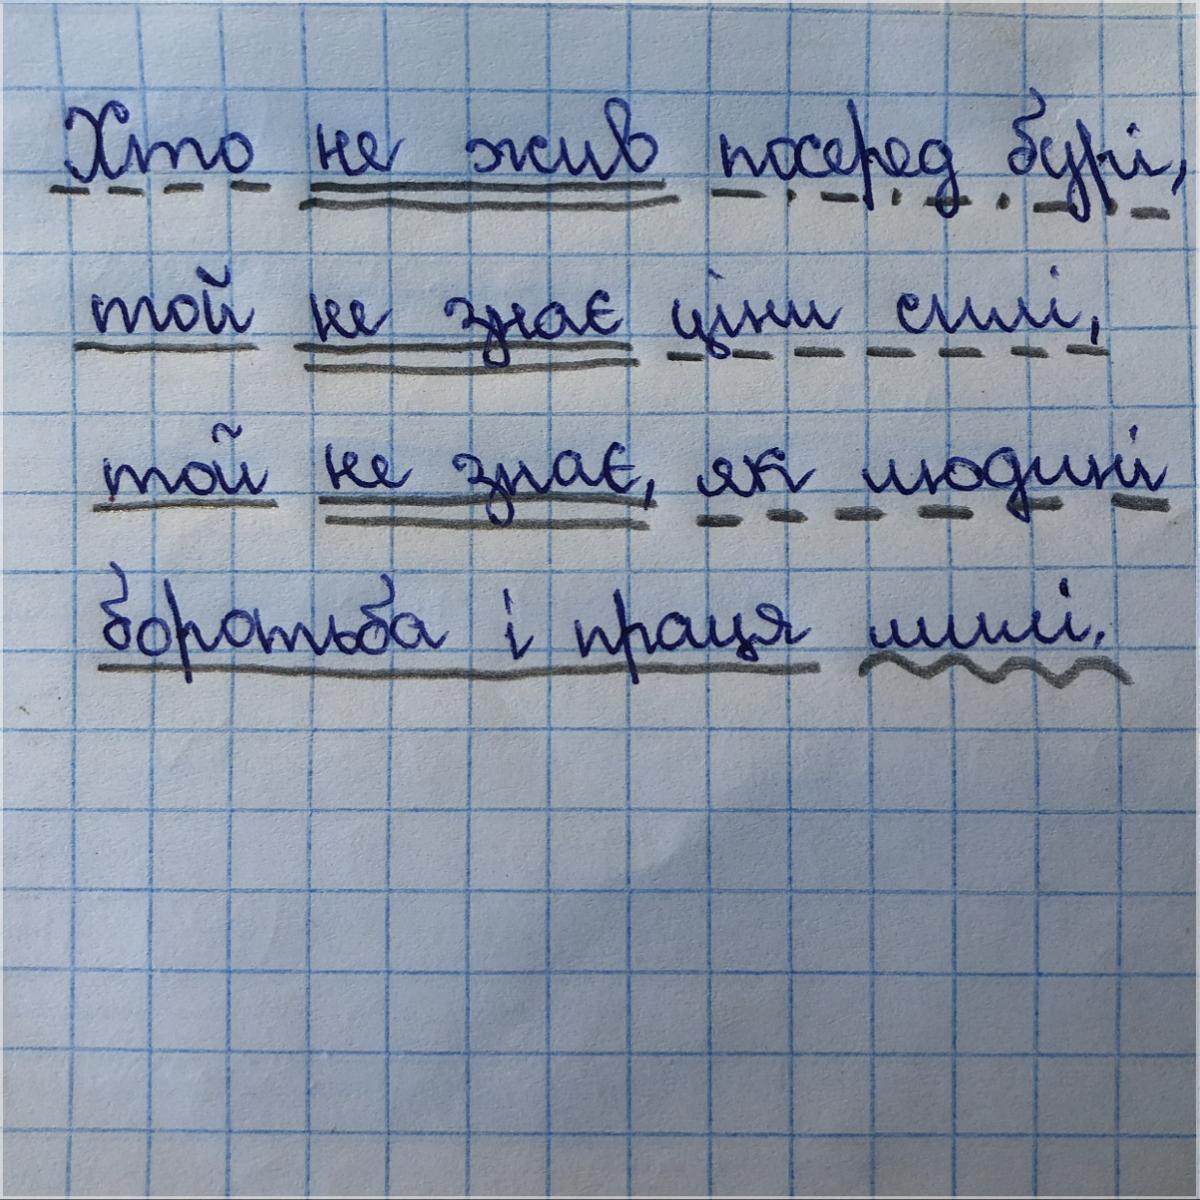 Хто не жив посеред бурі,
той не знає ціни силі,
той не знає, як людині
боротьба і праця милі.